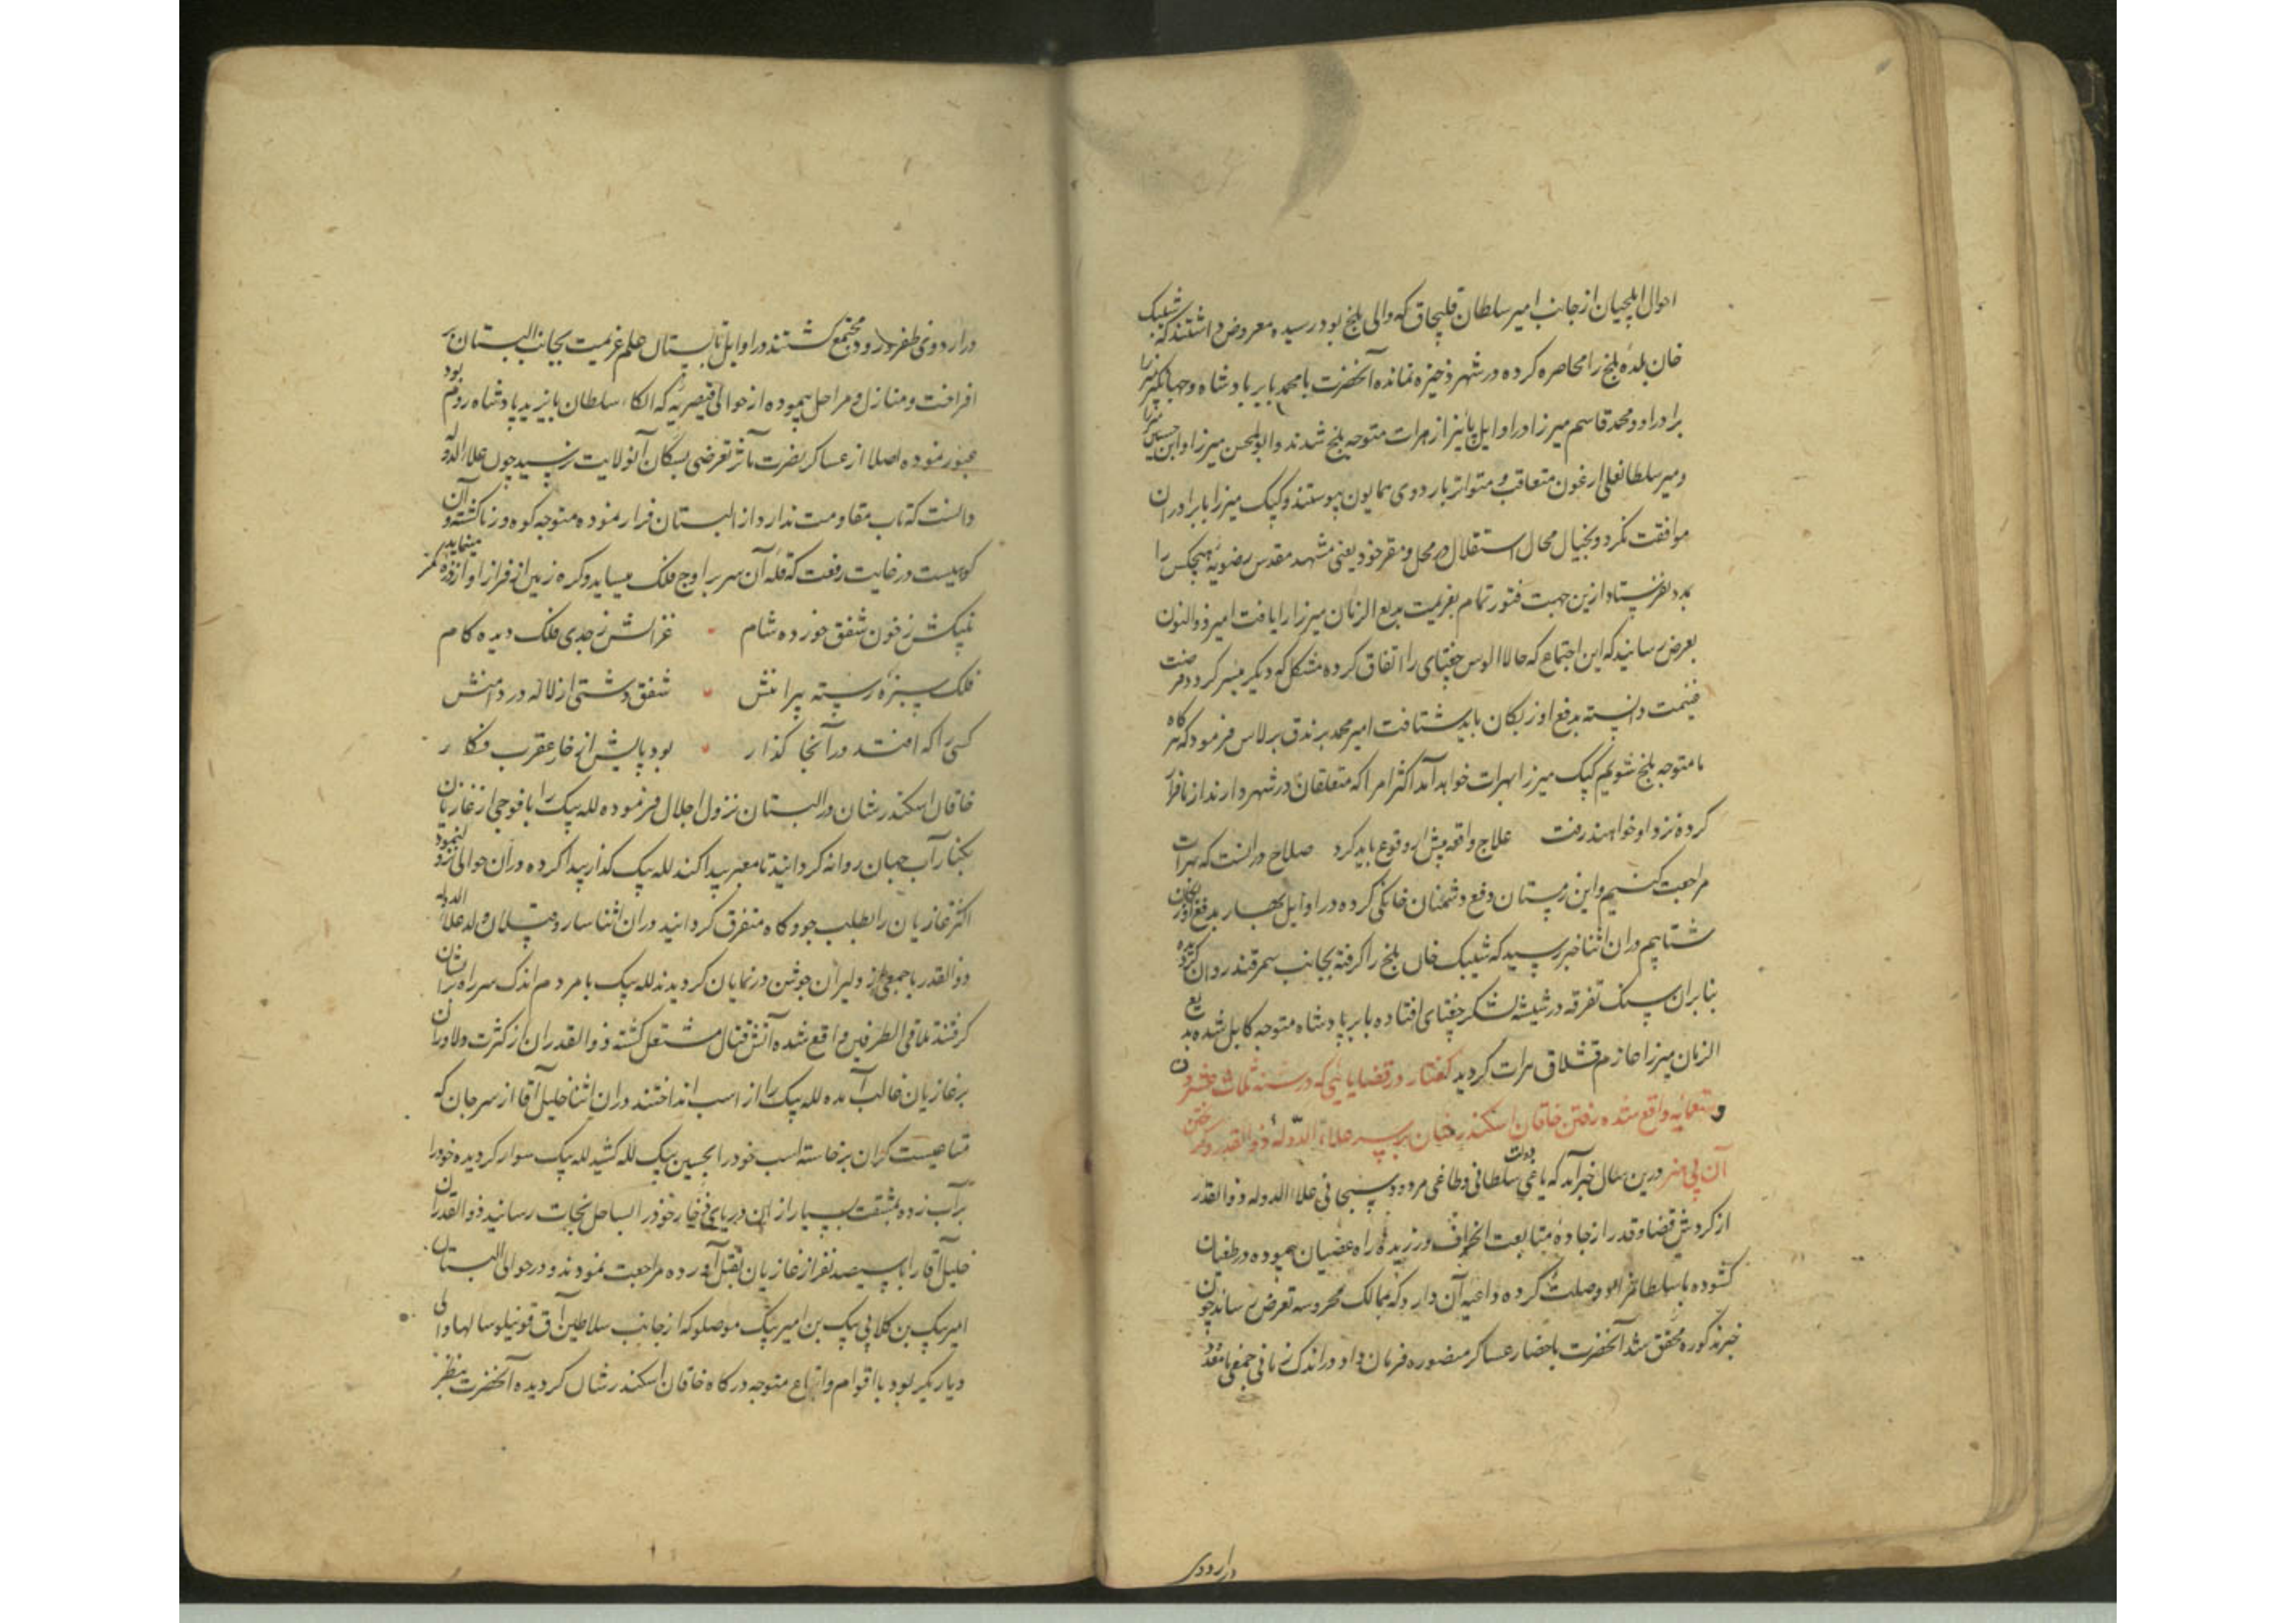 احوال ایلچیان از جانب امیر سلطان قلیچاق که والی بلخ بود رسیده معروض داشتند که شیبک
خان بلده بلخ را محاصره کرده در شهر ذخیره نمانده آنحضرت با محمد بابر پادشاه و جهانگیر میرزا
برادر او و محمد قاسم میرزا در اوایل پائیز از هرات متوجه بلخ شدند و ابوالمحسن میرزا و ابن حسین میرزا
و میر سلطانعلی ارغون متعاقب و متواتر باردوی همایون پیوستند و کپک میرزا با برادران
موافقت نکرد و بخیال محال استقلال در محل و مقر خود یعنی مشهد مقدس رضویه هیچکس را
بمدد نفرستاد ازین جهت فتور تمام بعزیمت بدیع الزمان میرزا راه یافت امیر ذوالنون
بعرض رسانید که این اجتماع که حالا الوس جغتای را اتفاق کرده مشکل که دیگر میسر گردد فرصت
غنیمت دانسته بدفع اوزبکان باید شتافت امیر محمد برندق برلاس فرمود که هرگاه
ما متوجه بلخ شویم کپک میرزا بهرات خواهد آمد اکثر امرا که متعلقان در شهر دارند از ما فرار
کرده نزد او خواهند رفت علاج واقعه پیش از وقوع باید کرد صلاح در آنست که بهرات
مراجعت کنیم و این زمستان دفع دشمنان خانگی کرده در اوایل بهار بدفع اوزبکان
شتابیم در ان اثنا خبر رسید که شیبک خان بلخ را گرفته بجانب سمرقند روان گردیده
بنا بران سنگ تفرقه در شیشه لشکر جغتای افتاده بابر پادشاه متوجه کابل شده بدیع
الزمان میرزا عازم قشلاق هرات گردید گفتار در قضایایی که در سنه ثلاث عشر و
و تسعمایه واقع شده رفتن خاقان اسکندر شان بر سر علاء الدوله ذوالقدر و گریختن
آن بی هنر درین سال خبر آمد که یاغی دولت سلطانی و طاغی مردود سبحانی علاء الدوله ذوالقدر
از گردش قضا و قدر از جاده متابعت انحراف ورزیده راه عصیان پیموده در طغیان
گشوده با سلطانمراد وصلت کرده داعیه آن دارد که بممالک محروسه تعرض رساند چون
خبر مذکوره محقق شد آنحضرت باحضار عساکر منصوره فرمان داد در اندک زمانی جمعی نامعدود
در اردوی
در اردوی ظفر ورود مجتمع گشتند در اوایل تابستان علم عزیمت بجانب البستان بر
افراخت و منازل و مراحل پیموده از حوالی قیصریه که الکاء سلطان بایزید پادشاه روم بود
عبور نموده اصلا از عساکر نصرت مآثر تعرضی بسکان آنولایت نرسید چون علاء الدوله
دانست که تاب مقاومت ندارد از البستان فرار نموده متوجه کوه درنا گشته و آن
کوهیست در غایت رفعت که قله آن سر بر اوج فلک میساید و کره زمین از فراز او از ذره کمتر مینماید
پلنگش ز خون شفق خورده شام غزالش ز جدی فلک دیده کام
فلک سبزه رسته پیرامنش شفق دشتی از لاله در دامنش
کسی را که افتد در آنجا گذار بود پایش از خار عقرب فگار
خاقان اسکندر شان در البستان نزول اجلال فرموده لله بیک را با فوجی از غازیان
بکنار آب جهان روانه گردانید تا معبر پیدا کند لله بیک گذار پیدا کرده در آن حوالی نزول نمود
اکثر غازیان را بطلب جو و کاه متفرق گردانید در ان اثنا سارو قپلان ولد علاء الدوله
ذوالقدر با جمعی از دلیران جوشن در نمایان گردیدند لله بیک با مردم اندک سر راه بر ایشان
گرفتند تلاقی الطرفین واقع شده آتش قتال مشتعل گشته ذوالقدران از کثرت دلاوران
بر غازیان غالب آمده لله بیک را از اسب انداختند در ان اثنا خلیل آقا از سر جان که
متاعیست گران برخاسته اسب خود را بحسین بیک لله کشید لله بیک سوار گردیده خود را
بر آب زده بمشقت بسیار از ان دریای ذخار خود را بساحل نجات رسانید ذوالقدران
خلیل آقا را با سیصد نفر از غازیان بقتل آورده مراجعت نمودند و در حوالی البستان
امیر بیک بن گلابی بیک بن امیر بیک موصلو که از جانب سلاطین آق قوینلو سالها والی
دیار بکر بود با اقوام و اتباع متوجه درگاه خاقان اسکندر شان گردیده آنحضرت بنظر